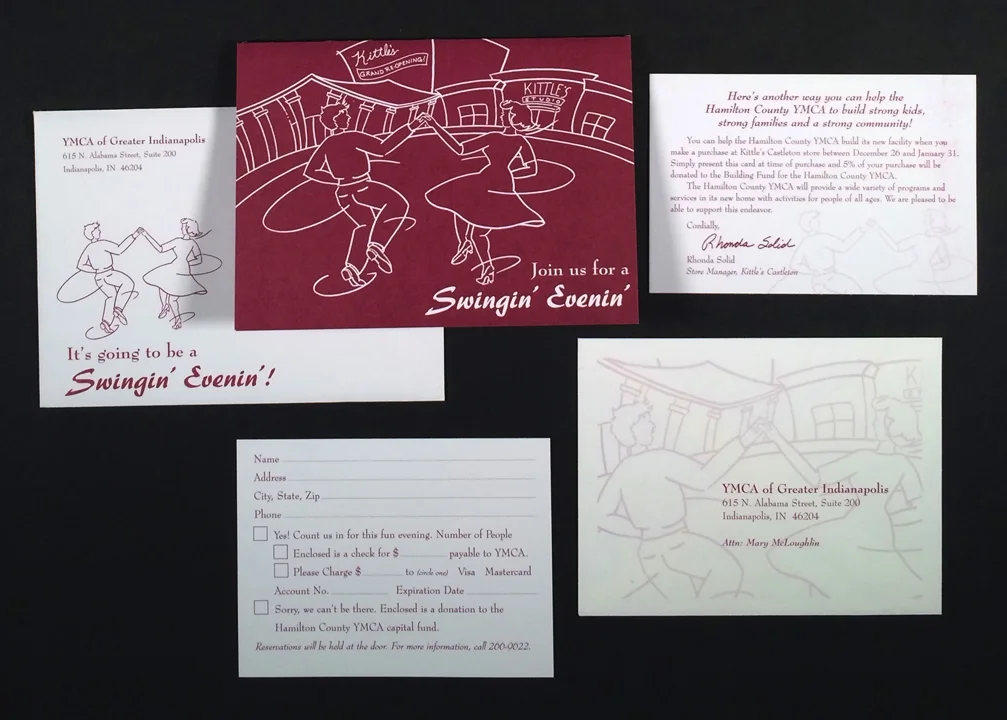 YMCA of Greater Indianapolis
615 N. Alabama Street, Suite 200
Indianapolis, IN 46204
It's going to be a
Swingin' Evenin'!
Kittle's
GRAND RE-OPENING!
KITTLE'S
STUDIO
Join us for a
Swingin' Evenin'
Here's another way you can help the
Hamilton County YMCA to build strong kids,
strong families and a strong community!
You can help the Hamilton County YMCA build its new facility when you
make a purchase at Kittle's Castleton store between December 26 and January 31.
Simply present this card at time of purchase and 5% of your purchase will be
donated to the Building Fund for the Hamilton County YMCA.
The Hamilton County YMCA will provide a wide variety of programs and
services in its new home with activities for people of all ages. We are pleased to be
able to support this endeavor.
Cordially,
Rhonda Solid
Rhonda Solid
Store Manager, Kittle's Castleton
Name
Address
City, State, Zip
Phone
Yes! Count us in for this fun evening. Number of People
Enclosed is a check for $ payable to YMCA.
Please Charge $ to (circle one) Visa Mastercard
Account No. Expiration Date
Sorry, we can't be there. Enclosed is a donation to the
Hamilton County YMCA capital fund.
Reservations will be held at the door. For more information, call 200-9022.
K
YMCA of Greater Indianapolis
615 N. Alabama Street, Suite 200
Indianapolis, IN 46204
Attn: Mary McLoughlin